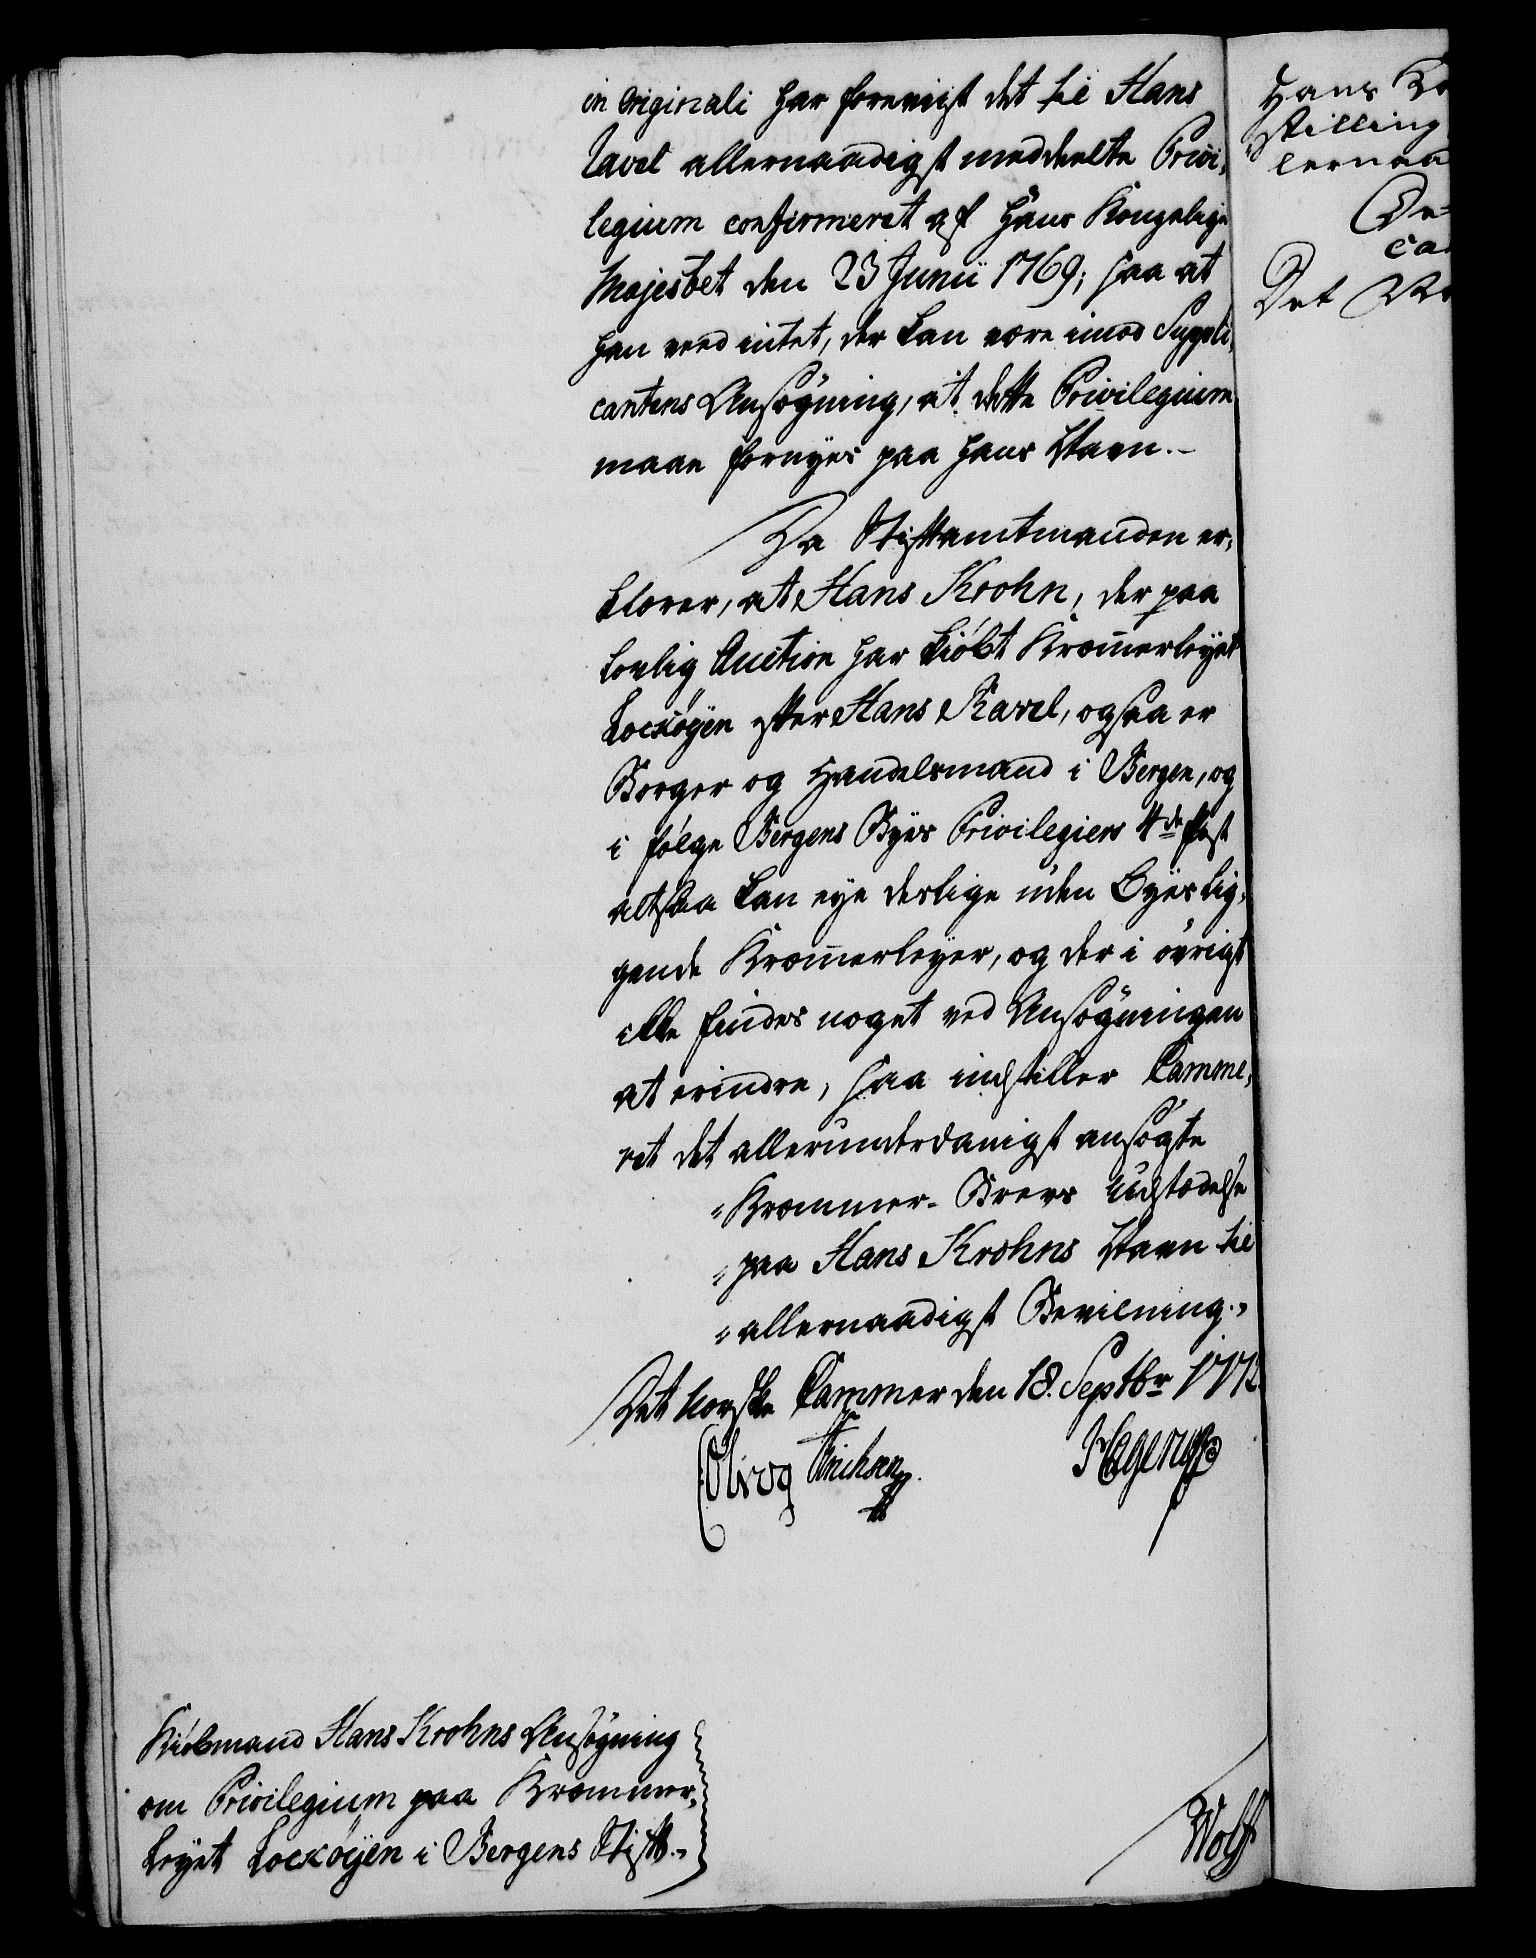 in originali har foreviist det til Hans
Tavel allernaadigst meddeelte Privi,
legium confirmeret af Hans Kongelige
Majestet den 23 Junii 1769; saa at
han veed intet, der kan være imod Suppli,
cantens Ansøgning, at dette Privilegium
maae fornyes paa hans Navn.-
Da Stiftamtmanden er,
klærer, at Hans Krohn, der paa
lovlig Auction har kiøbt Kræmerleyet
Locköyen efter Hans Tavel, ogsaa er
Borger og Handelsmand i Bergen, og
i følge Bergens Byes Privilegiers 4de Post
altsaa kan eye deslige uden Byes lig,
gende Kræmerleyer, og der i øvrigt
ikke findes noget ved Ansøgningen
at erindre, saa indstiller Camme,
ret det allerunderdanigst ansøgte
"Kræmmer-Brevs Udstædelse
"paa Hans Krohns Navn til
"allernaadigst Bevilning.,
Det norske Cammer den 18. Septbr 177
Erichsen. Hagerup
Kiøbmand Hans Krohns Ansøgning
om Privilegium paa Kræmmer,
leyet Locköyen i Bergens Stift.,
Wolff
Hans
stilling
lernaa
Det